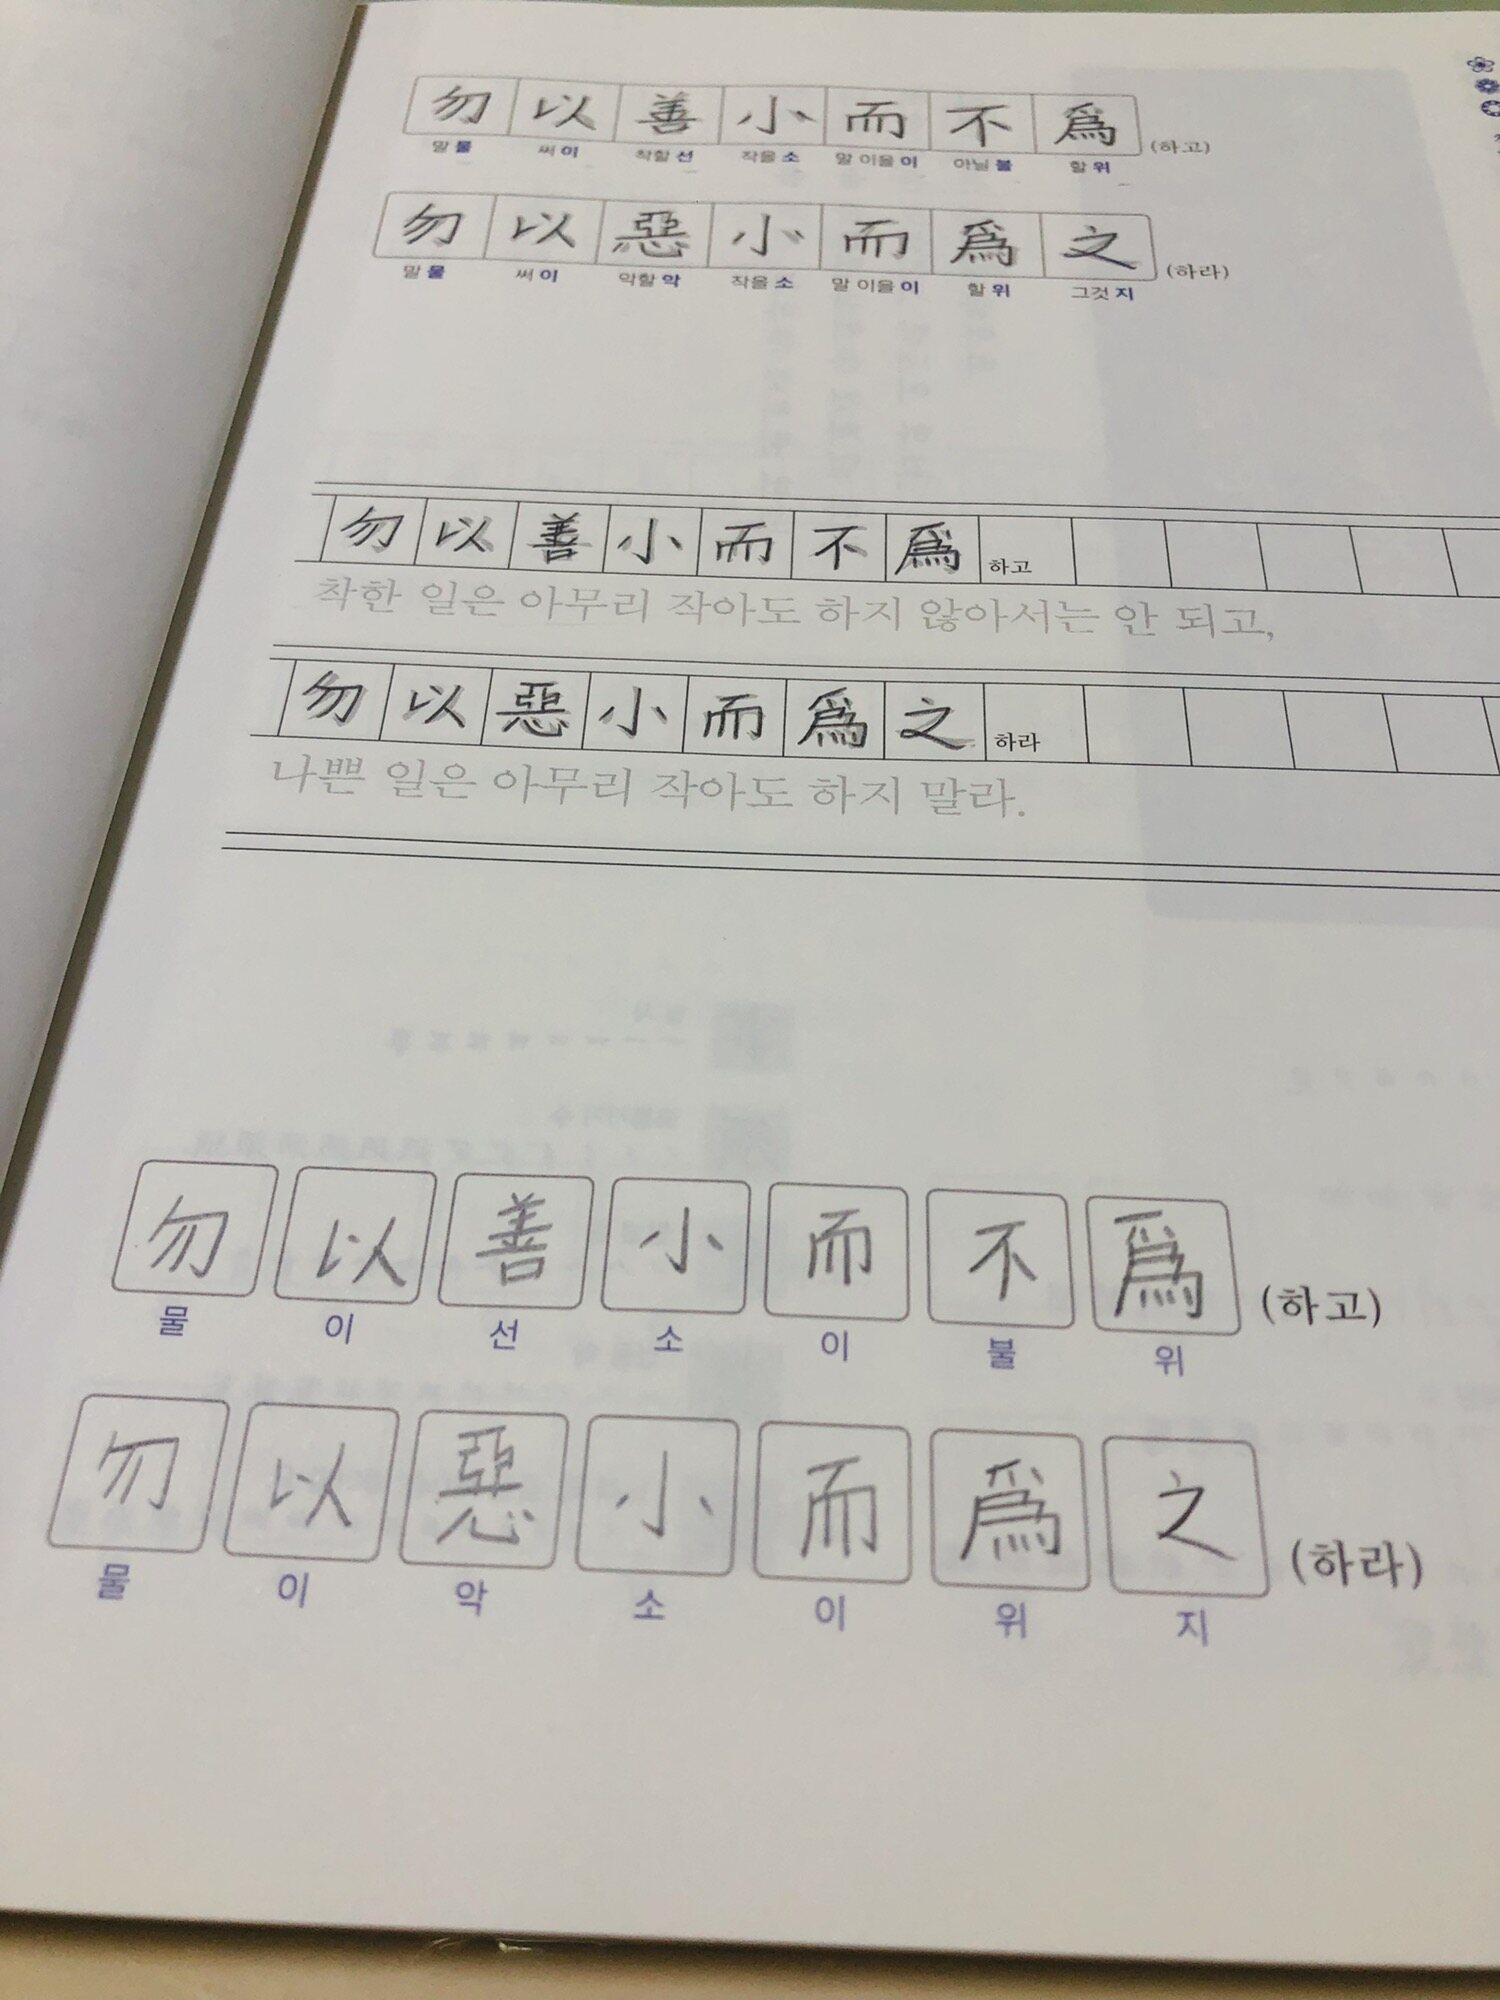 勿以善小而不爲(하고)
말 물 써 이 착할 선 작을 소 말 이을 이 아닐 불 할 위
勿以惡小而爲之(하라)
말 물 써 이 악할 악 작을 소 말 이을 이 할 위 그것 지
勿以善小而不爲하고
착한 일은 아무리 작아도 하지 않아서는 안 되고,
勿以惡小而爲之하라
나쁜 일은 아무리 작아도 하지 말라.
勿以善小而不爲(하고)
물 이 선 소 이 불 위
勿以惡小而爲之(하라)
물 이 악 소 이 위 지